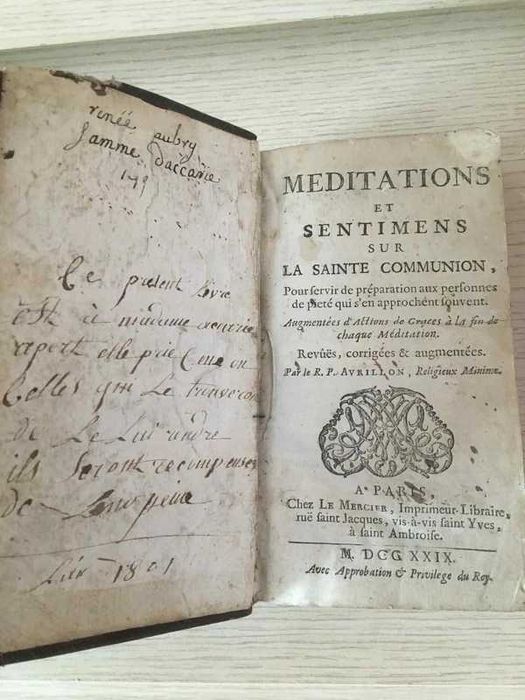 renée aubry
famme daccarie
179
Ce present livre
est à madame accarie
aport elle prie Ceux ou
Celles qui Le trouveron
de Le Lui randre
ils Seront recompenses
de Leur peine
1801
MEDITATIONS
ET
SENTIMENS
SUR
LA SAINTE COMMUNION,
Pour servir de préparation aux personnes
de pieté qui s'en approchent souvent.
Augmentées d'Actions de Graces à la fin de
chaque Méditation.
Revûës, corrigées & augmentées.
Par le R. P. AVRILLON, Religieux Minime.
A PARIS,
Chez LE MERCIER, Imprimeur-Libraire,
ruë saint Jacques, vis-à-vis saint Yves,
à saint Ambroise.
M. DCC XXIX.
Avec Approbation & Privilege du Roy.